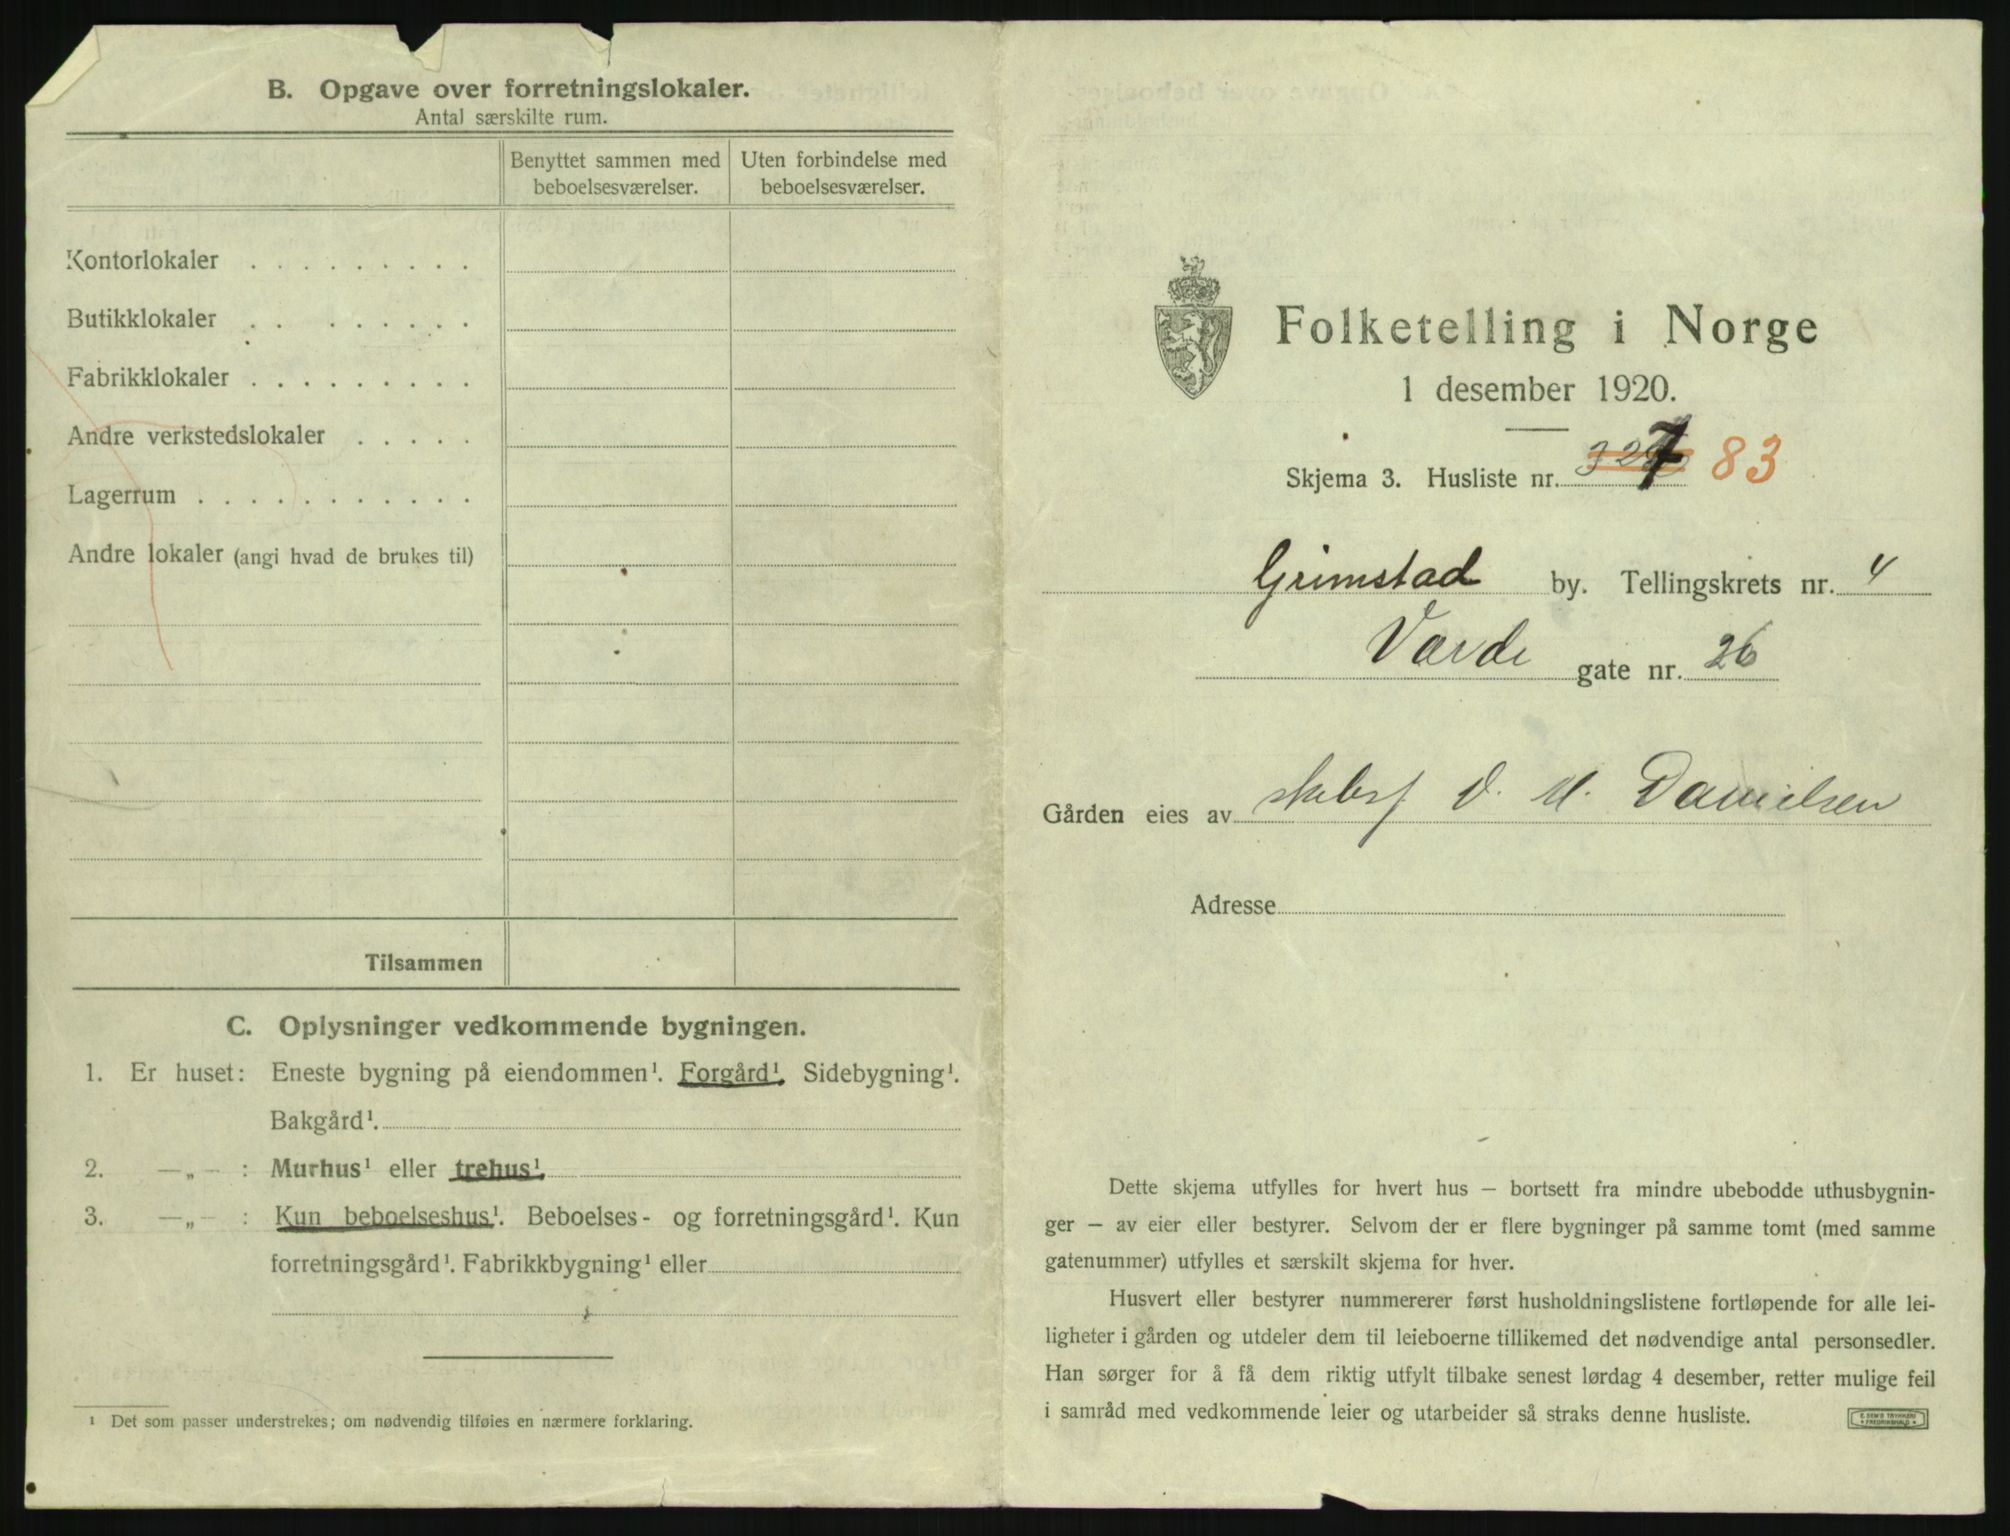 B. Opgave over forretningslokaler.
Antal særskilte rum.
Benyttet sammen med beboelsesværelser.
Uten forbindelse med beboelsesværelser.
Kontorlokaler . . . . . . . . .
Butikklokaler . . . . . . . .
Fabrikklokaler . . . . . . . . .
Andre verkstedslokaler . . . . .
Lagerrum . . . . . . . . . . .
Andre lokaler (angi hvad de brukes til)
Tilsammen
C. Oplysninger vedkommende bygningen.
1. Er huset: Eneste bygning på eiendommen¹. Forgård¹. Sidebygning¹.
Bakgård¹.
2. —„— : Murhus¹ eller trehus¹.
3. —„— : Kun beboelseshus¹. Beboelses- og forretningsgård¹. Kun
forretningsgård¹. Fabrikkbygning¹ eller
¹ Det som passer understrekes; om nødvendig tilføies en nærmere forklaring.
Folketelling i Norge
1 desember 1920.
Skjema 3. Husliste nr. 83
Grimstad by. Tellingskrets nr. 4
Varde gate nr. 26
Gården eies av skibsf D. M. Danielsen
Adresse
Dette skjema utfylles for hvert hus – bortsett fra mindre ubebodde uthusbygnin-
ger – av eier eller bestyrer. Selvom der er flere bygninger på samme tomt (med samme
gatenummer) utfylles et særskilt skjema for hver.
Husvert eller bestyrer nummererer først husholdningslistene fortløpende for alle lei-
ligheter i gården og utdeler dem til leieboerne tillikemed det nødvendige antal personsedler.
Han sørger for å få dem riktig utfylt tilbake senest lørdag 4 desember, retter mulige feil
i samråd med vedkommende leier og utarbeider så straks denne husliste.
E. SEM'S TRYKKERI
FREDRIKSHALD